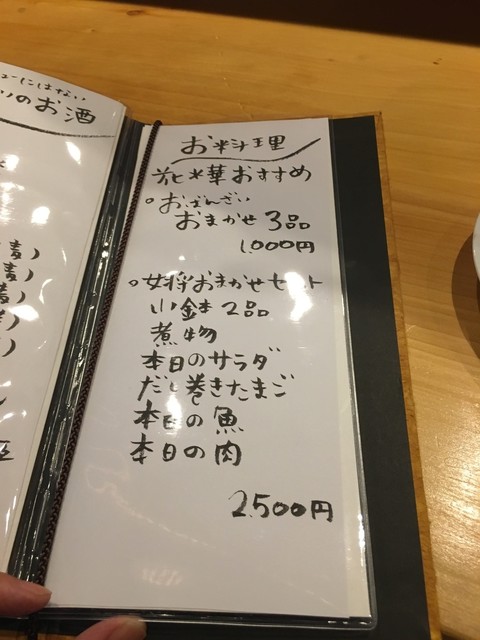 ューにはない
のお酒
麦)
麦)
お料理
花米華おすすめ
○おばんざい
おまかせ3品
1,000円
○女将おまかせセット
小鉢2品
煮物
本日のサラダ
だし巻きたまご
本日の魚
本日の肉
2,500円